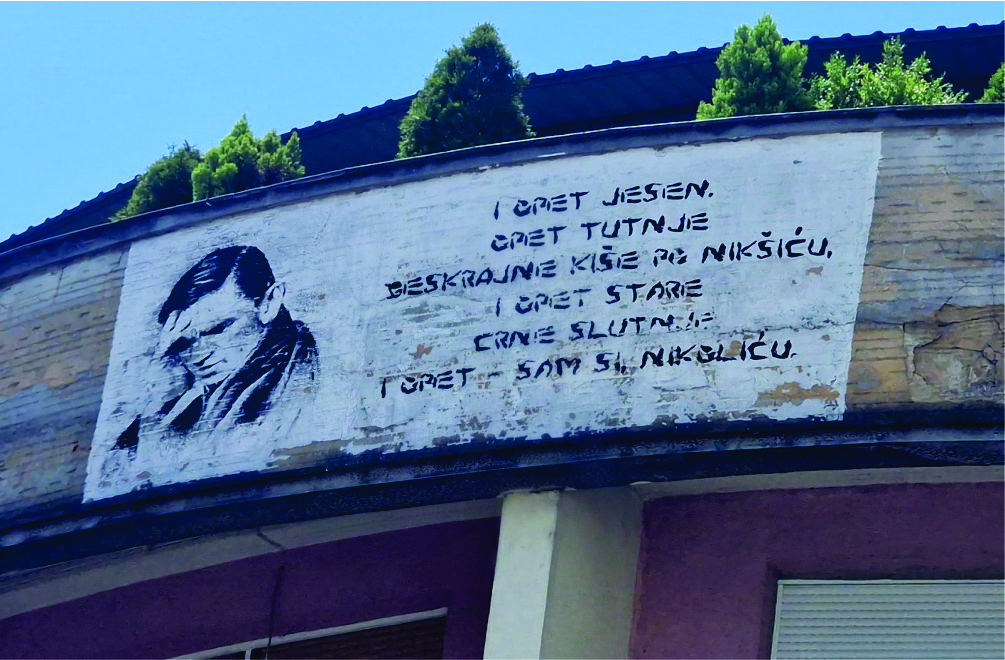 I OPET JESEN.
OPET TUTNJE
BESKRAJNE KIŠE PO NIKŠIĆU,
I OPET STARE
CRNE SLUTNJE
I OPET - SAM SI, NIKOLIĆU.